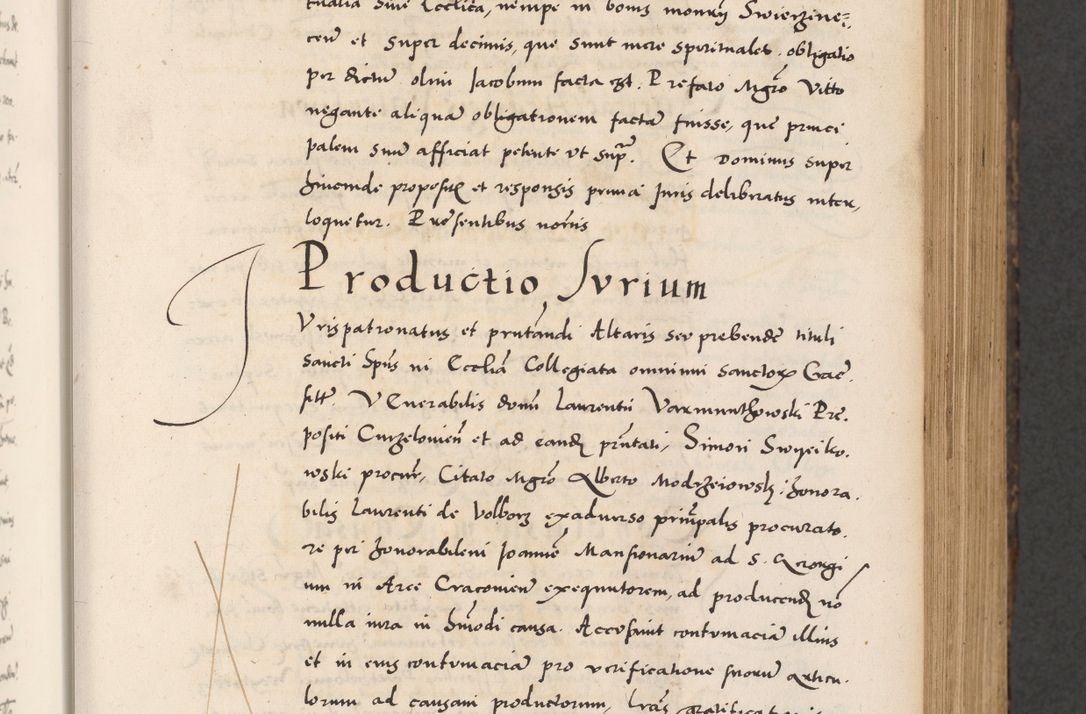 tualia sive Ecclica, nempe in bonis monrÿ Swierzine-
cen̄ et super decimis, que sunt mere spirituales, obligatio
per dictū olim Jacobum facta est. Prefato Mgrō Vitto
negante aliquā obligationem factā fuisse, que princi
palem suū afficiat petente ut supͣ. Et Dominus super
hincinde propositꝭ et responsis prima Juris deliberatus inter,
loquetur. Presentibus notīis
Productio Jurium
Jurispatronatus et pn̄tandi Altaris seu prebende tituli
sancti Spūs in Ecclia Collegiata omnium sanctorꝝ
Venerabilis domī Laurentii Varmunthowski Pre,
positi Curzelovien̄ et ad eandꝭ prn̄tati, Simon
wski procur̄, Citato Mgrō Alberto Modrzeiowskj honora,
bilis Laurenti de Volborz exadverso prinpalis procurato,
re per honorabilem Joannē Mansionariū ad S. Georgi
um in Arce Cracovien̄ exequutorem, ad producendꝭ nō
nulla iura in hmōdi causa. Accusavit contumaciā illius
et in eius contumaciā pro verificatione suorū Articu,
lorum ad causam productorum, lrās